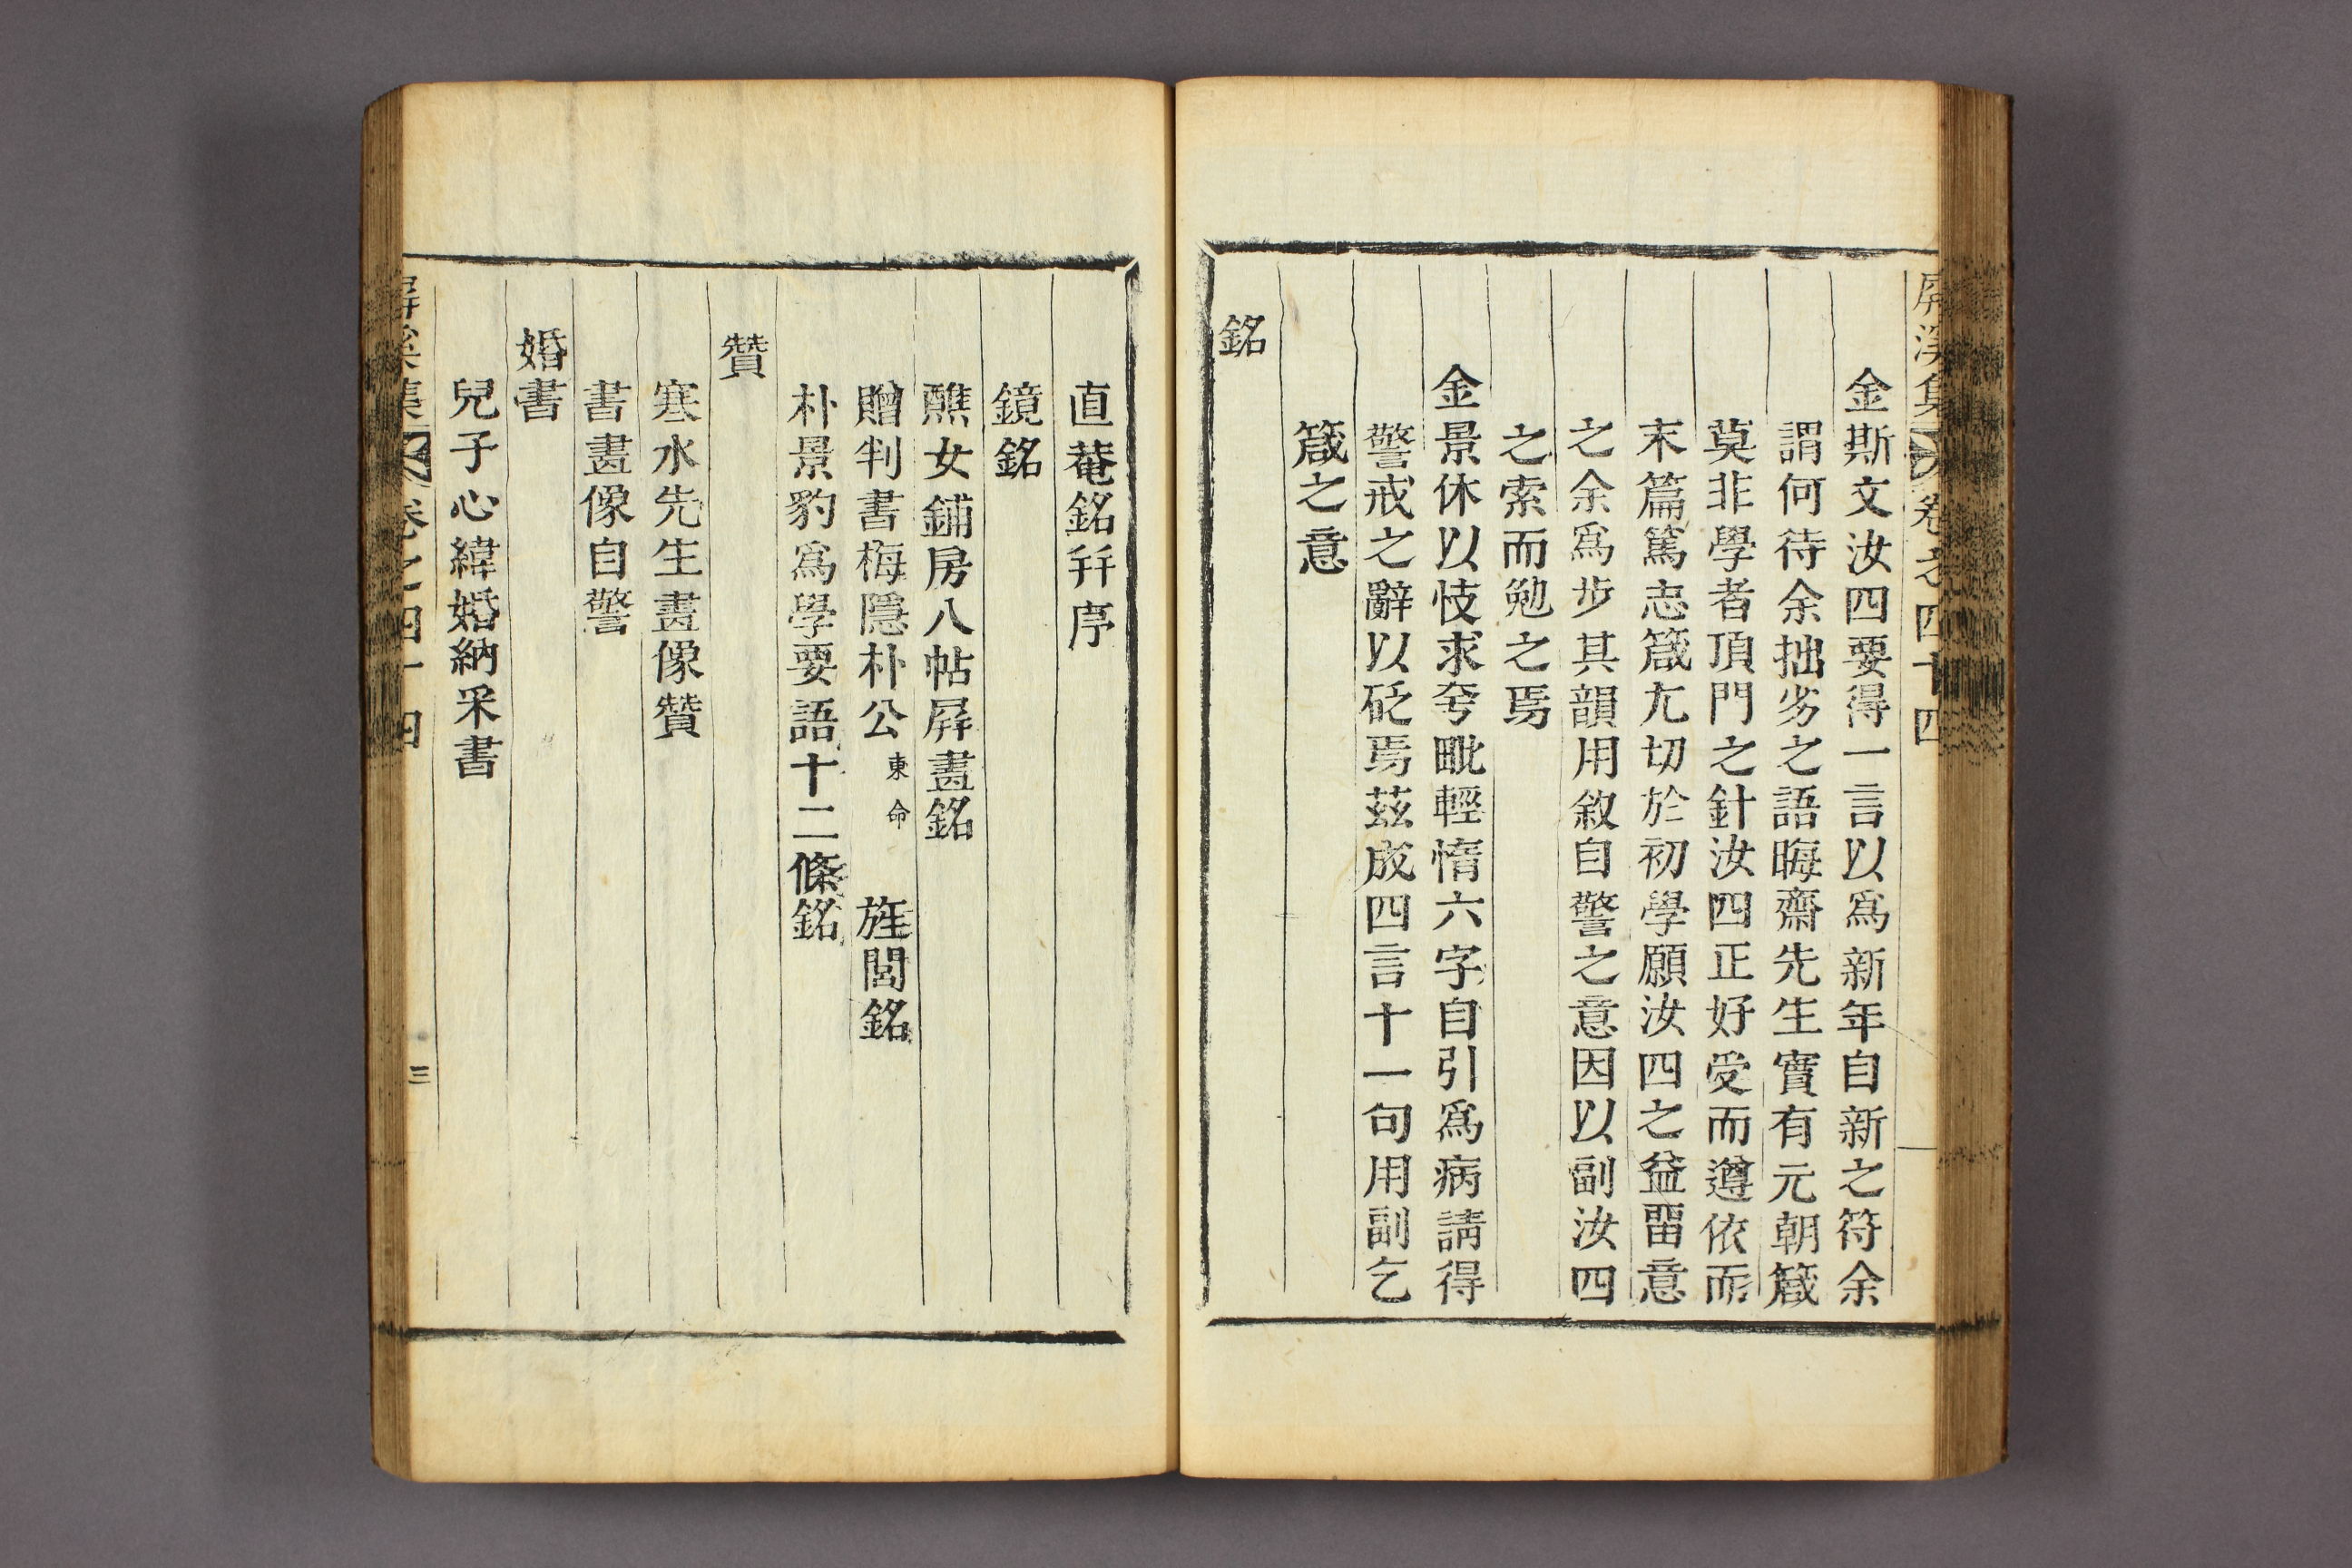 屛溪集 卷之四十四
金斯文汝四要得一言以爲新年自新之符余
謂何待余拙劣之語晦齋先生實有元朝箴
莫非學者頂門之針汝四正好受而遵依而
末篇篤志箴尤切於初學願汝四之益留意
之余爲步其韻用敘自警之意因以副汝四
之索而勉之焉
金景休以忮求夸毗輕惰六字自引爲病請得
警戒之辭以砭焉茲成四言十一句用副乞
箴之意
銘
直菴銘幷序
鏡銘
醮女鋪房八帖屛畫銘
贈判書梅隱朴公東命 旌閭銘
朴景豹爲學要語十二條銘
贊
寒水先生畫像贊
書畫像自警
婚書
兒子心緯婚納采書
屛溪集 卷之四十四 三